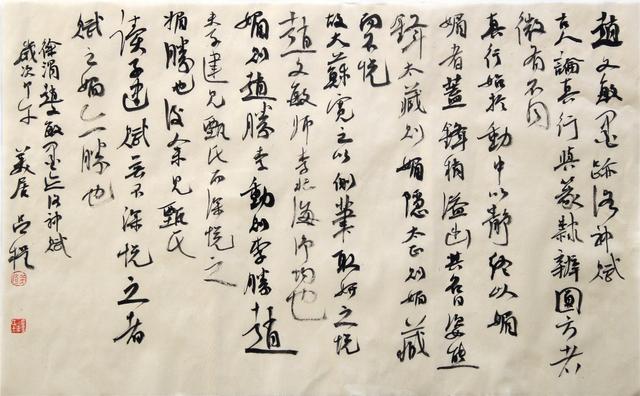 趙文敏墨跡洛神賦
古人論真行與篆隸辨圓方者
微有不同
真行始於動中以靜終以媚
媚者蓋鋒稍溢出其名曰姿態
鋒太藏則媚隱太正則媚藏
而不悦
故大蘇寬之以側筆取妍之説
趙文敏師李北海净均也
媚則趙勝李動則李勝趙
夫子建見甄氏而深悦之
媚勝也後人未見甄氏
讀子建賦無不深悦之者
賦之媚亦勝也
徐渭趙文敏墨跡洛神賦
歲次甲午